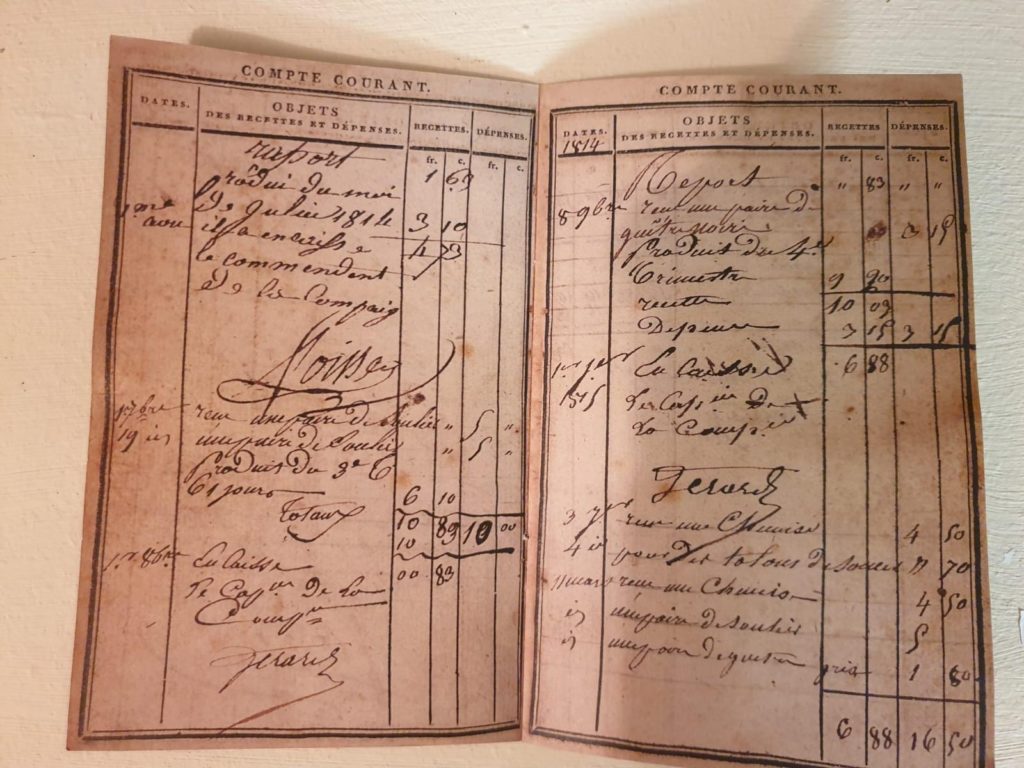 COMPTE COURANT.
DATES. OBJETS DES RECETTES ET DÉPENSES. RECETTES. DÉPENSES.
fr. c. fr. c.
report 1 63
produi du moi
de Juliu 1814 3 10
1er aou il a encaisse 4 73
le commendent
de la Compaig
Loisse
1 7bre reçu une paire de Souliés " 5 "
19 id une paire de Souliés " 5 "
Produit du 3e T
61 jours 6 10
Totaux 10 83 10 00
10
1er 8bre En Caisse 00 83
le Capne de la
Compie
Gerard
COMPTE COURANT.
DATES. OBJETS DES RECETTES ET DÉPENSES. RECETTES DÉPENSES.
1814 fr. c. fr. c.
Report " 83 " "
8 9bre reçu une paire de
guêtre noire 3 15
Produit du 4e
Trimestre 9 20
recette 10 03
Depense 3 15 3 15
1er Jer En Caisse 6 88
1815 Le Capne De
La Compie
Gerard
3 Jer reçu une Chemise 4 50
4 id pour des talons de Souliés " 70
11 mars reçu une Chemise 4 50
id une paire de Souliés 5
id une paire de guetre gris 1 80
6 88 16 50